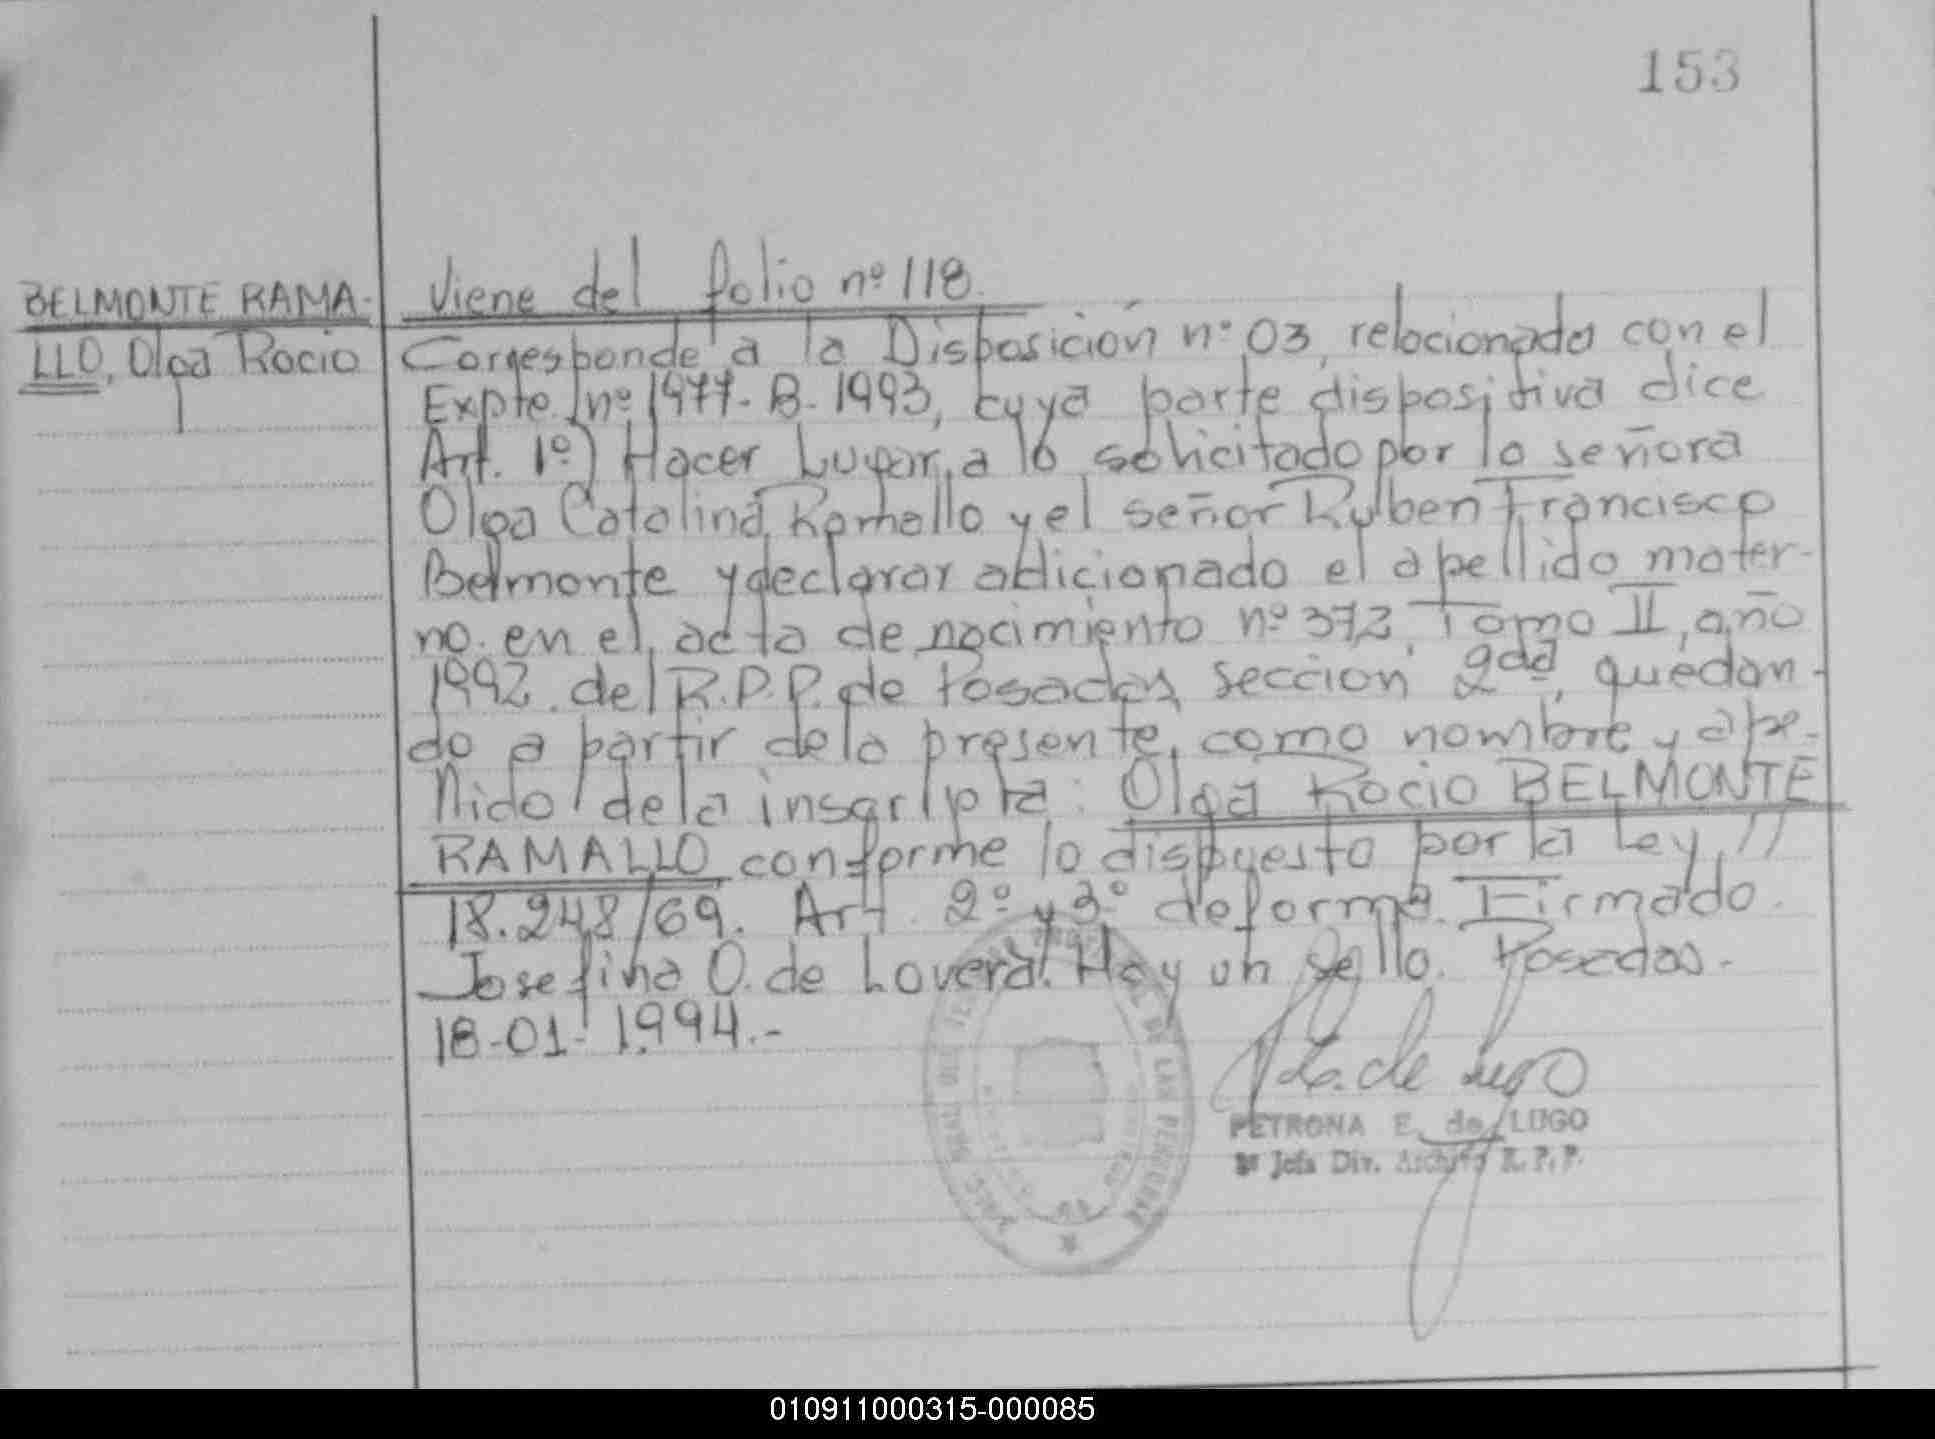 153
BELMONTE RAMA-
LLO, Olga Rocio
Viene del folio nº 118.
Corresponde a la Disposición nº 03, relacionada con el
Expte. nº 1977-B-1993, cuya parte dispositiva dice
Art. 1º) Hacer Lugar a lo solicitado por la señora
Olga Catalina Ramallo y el señor Ruben Francisco
Belmonte y declarar adicionado el apellido mater-
no en el acta de nacimiento nº 372 Tomo II, año
1992 del R.P.P. de Posadas, sección 2da, quedan-
do a partir de la presente, como nombre y ape-
llido de la inscripta: Olga Rocio BELMONTE
RAMALLO conforme lo dispuesto por la Ley //
18.248/69. Art. 2º y 3º de forma. Firmado.
Josefina O. de Lovera. Hay un sello. Posadas.-
18-01-1994.-
DE LAS PERSONAS
PETRONA E. de LUGO
Jefa Div. Archivo R.P.P.
010911000315-000085